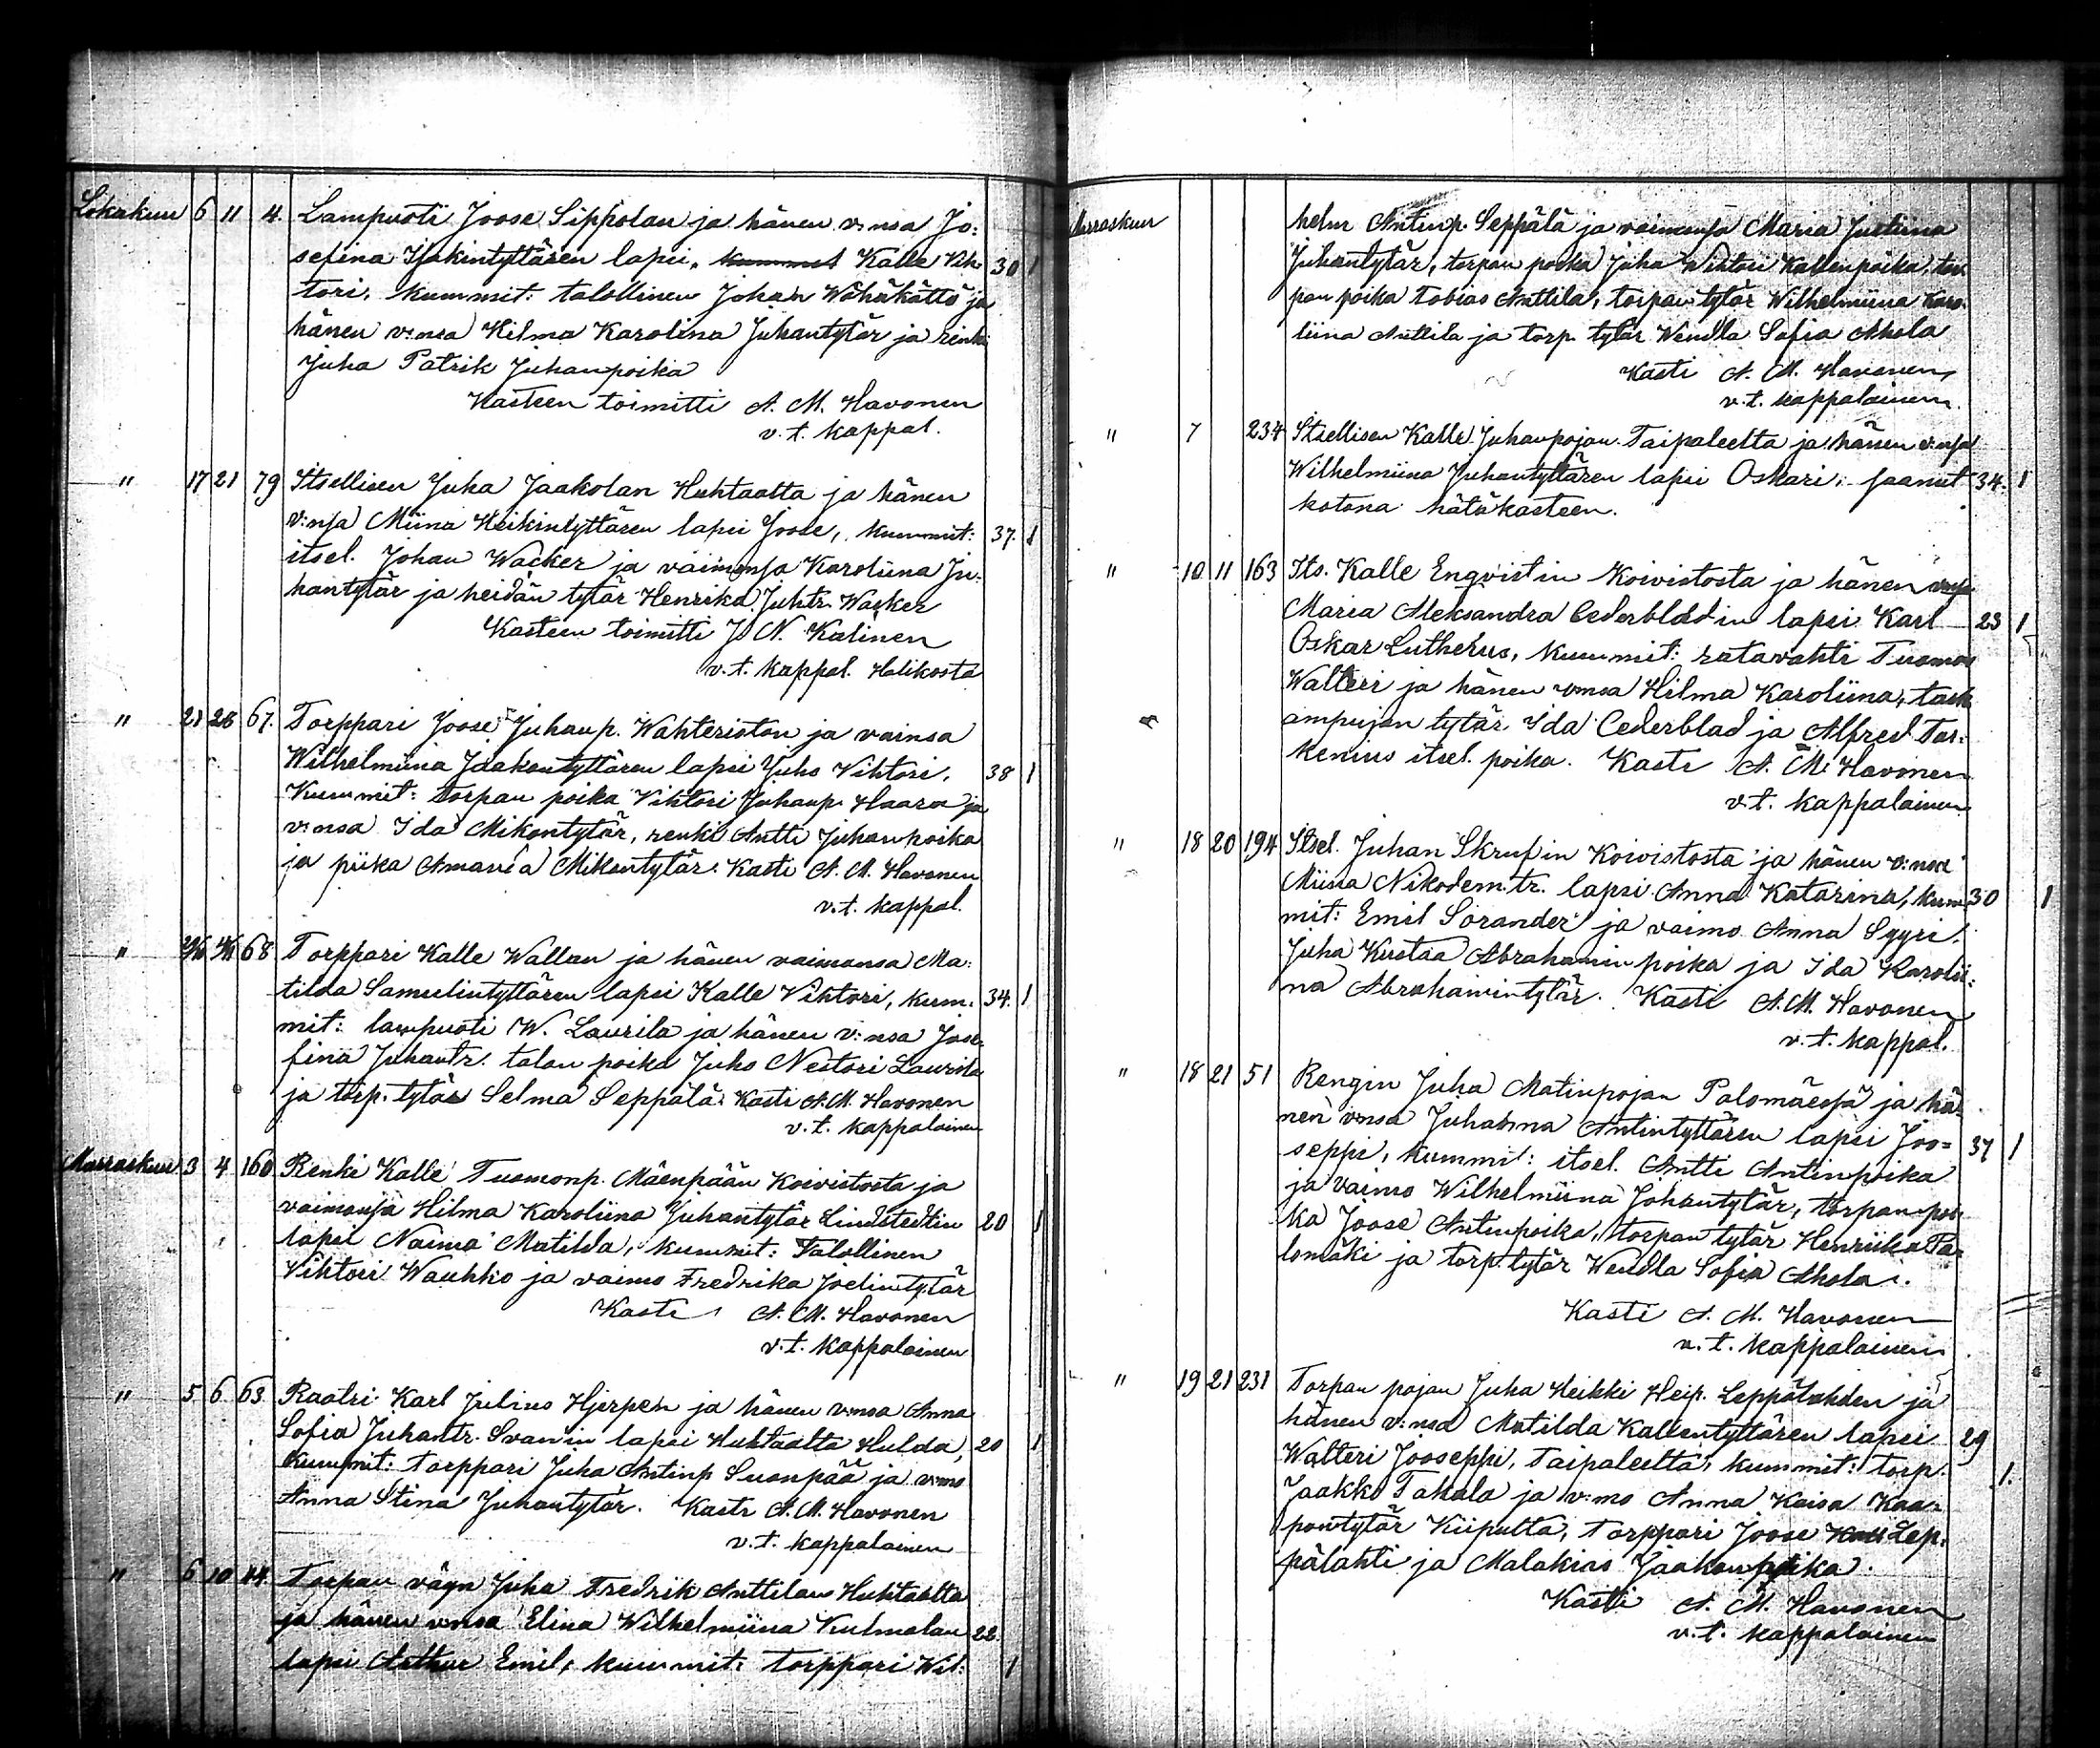 Lokakuu 6 11 4. Lampuoti Joose Sippolan ja hänen v:nsa Jo:
sefina Isakintyttären lapsi, Kalle Vih 30 1
tori. Kummit: talollinen Johan Wähäkättö ja
hänen v:nsa Hilma Karolina Juhantytär ja renki
Juha Patrik Juhanpoika
Kasteen toimitti A. M. Havonen
v. t. kappal.
" 17 21 79 Itsellisen Juha Jaakolan Huhtaalta ja hänen
v:nsa Miina Heikintyttären lapsi Joose, kummit: 37. 1
itsel. Johan Wacker ja vaimonsa Karoliina Ju-
hantytär ja heidän tytär Henrika Juhtr. Wacker
Kasteen toimitti J. N. Kalinen
v. t. kappal. Halikosta
" 21 26 67. Torppari Joose Juhanp. Wahteriston ja vainsa
Wilhelmiina Jaakontyttären lapsi Juho Vihtori, 38 1
Kummit: torpan poika Vihtori Juhanp. Haara ja
v:nsa Ida Mikontytär, renki Antti Juhanpoika
ja piika Amanda Mikontytär. Kasti A. M. Havonen
v. t. kappal.
" 68 Torppari Kalle Wallan ja hänen vaimonsa Ma:
tilda Samulintyttären lapsi Kalle Vihtori, kum- 34. 1
mit: lampuoti W. Laurila ja hänen v:nsa Jose-
fina Juhantr. talon poika Juho Nestori Laurila
ja torp. tytär Selma Seppälä. Kasti A. M. Havonen
v. t. kappalainen
Marraskuu 3 4 160 Renki Kalle Tuomonp. Mäenpään Koivistosta ja
vaimonsa Hilma Karoliina Juhantytär Lindstedtin 20 1
lapsi Naima Matilda, kummit: Talollinen
Vihtori Wauhko ja vaimo Fredrika Joelintytär
Kasti A. M. Havonen
v. t. kappalainen
" 5 6 63 Raatri Karl Julius Hjerpen ja hänen v:nsa Anna
Sofia Juhantr. Svanin lapsi Huhtaalta Hulda, 20 1
Kummit: Torppari Juha Antinp Suonpää ja v:mo
Anna Stina Juhantytär. Kasti A. M. Havonen
v. t. kappalainen
" 6 10 44. Torpan vägn Juha Fredrik Anttilan Huhtaalta
ja hänen v:nsa Elina Wilhelmiina Kulmalan 22.
lapsi Arthur Emil, kummit: torppari Wil: 1
Marraskuu helm Antinp. Seppälä ja vaimonsa Maria Justiina
Juhantytär, torpan poika Juha Vihtori Kallenpoika, tor
pan poika Tobias Anttila, torpan tytär Wilhelmiina Karo-
liina Anttila ja torp. tytär Wendla Sofia Ahola
Kasti A. M. Havonen
v. t. kappalainen
" 7 234 Itsellisen Kalle Juhanpojan Taipaleelta ja hänen v:nsa
Wilhelmiina Juhantyttären lapsi Oskari, saanut 34. 1
kotona hätäkasteen.
" 10 11 163 Its. Kalle Enqvistin Koivistosta ja hänen v:nsa
Maria Aleksandra Cederbladin lapsi Karl 23 1
Oskar Lutherus, kummit: ratavahti Tuomas
Walteri ja hänen v:nsa Hilma Karoliina, tark
ampujan tytär Ida Cederblad ja Alfred Tor:
kenius itsel. poika. Kasti A. M. Havonen
v. t. kappalainen
" 18 20 194 Itsel. Juhan Skrufin Koivistosta ja hänen v:nsa
Miina Nikodem.tr. lapsi Anna Katarina, kum 30 1
mit: Emil Sorander ja vaimo Anna Syyri.
Juha Kustaa Abrahamin poika ja Ida Karolii:
na Abrahamintytär. Kasti A. M. Havonen
v. t. kappal.
" 18 21 51 Rengin Juha Matinpojan Palomäessä ja hä-
nen v:nsa Juhanna Antintyttären lapsi Joo= 37 1
seppi, kummit: itsel. Antti Antinpoika
ja vaimo Wilhelmiina Johantytär, torpan poi
ka Joose Antinpoika, torpan tytär Henriika Pa-
lomäki ja torp. tytär Wendla Sofia Ahola.
Kasti A. M. Havonen
v. t. kappalainen
" 19 21 231 Torpan pojan Juha Heikki Heip. Leppälahden ja
hänen v:nsa Matilda Kallentyttären lapsi 29
Walteri Jooseppi, Taipaleelta, kummit: torp. 1.
Jaakko Tahala ja v:mo Anna Kaisa Kaa:
pontytär Kiipulta, Torppari Joose Lep:
pälahti ja Malakias Jaakonpoika.
Kasti A. M. Havonen
v. t. kappalainen